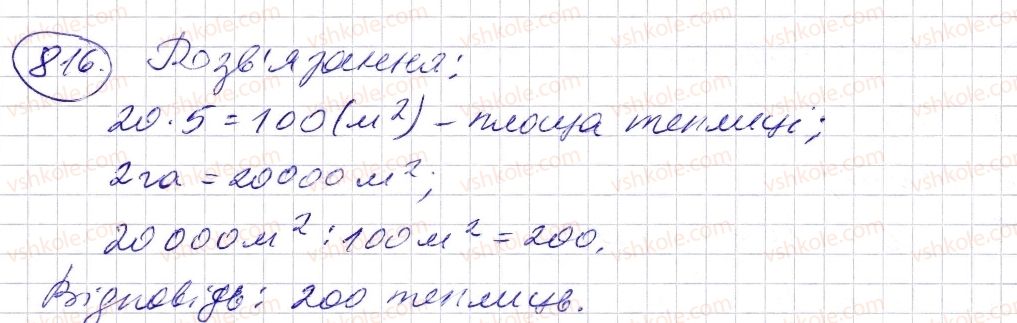 816. Розв'язання:
20·5=100(м²) – площа теплиці;
2га = 20000м²;
20000м² : 100м² = 200.
Відповідь: 200 теплиць.